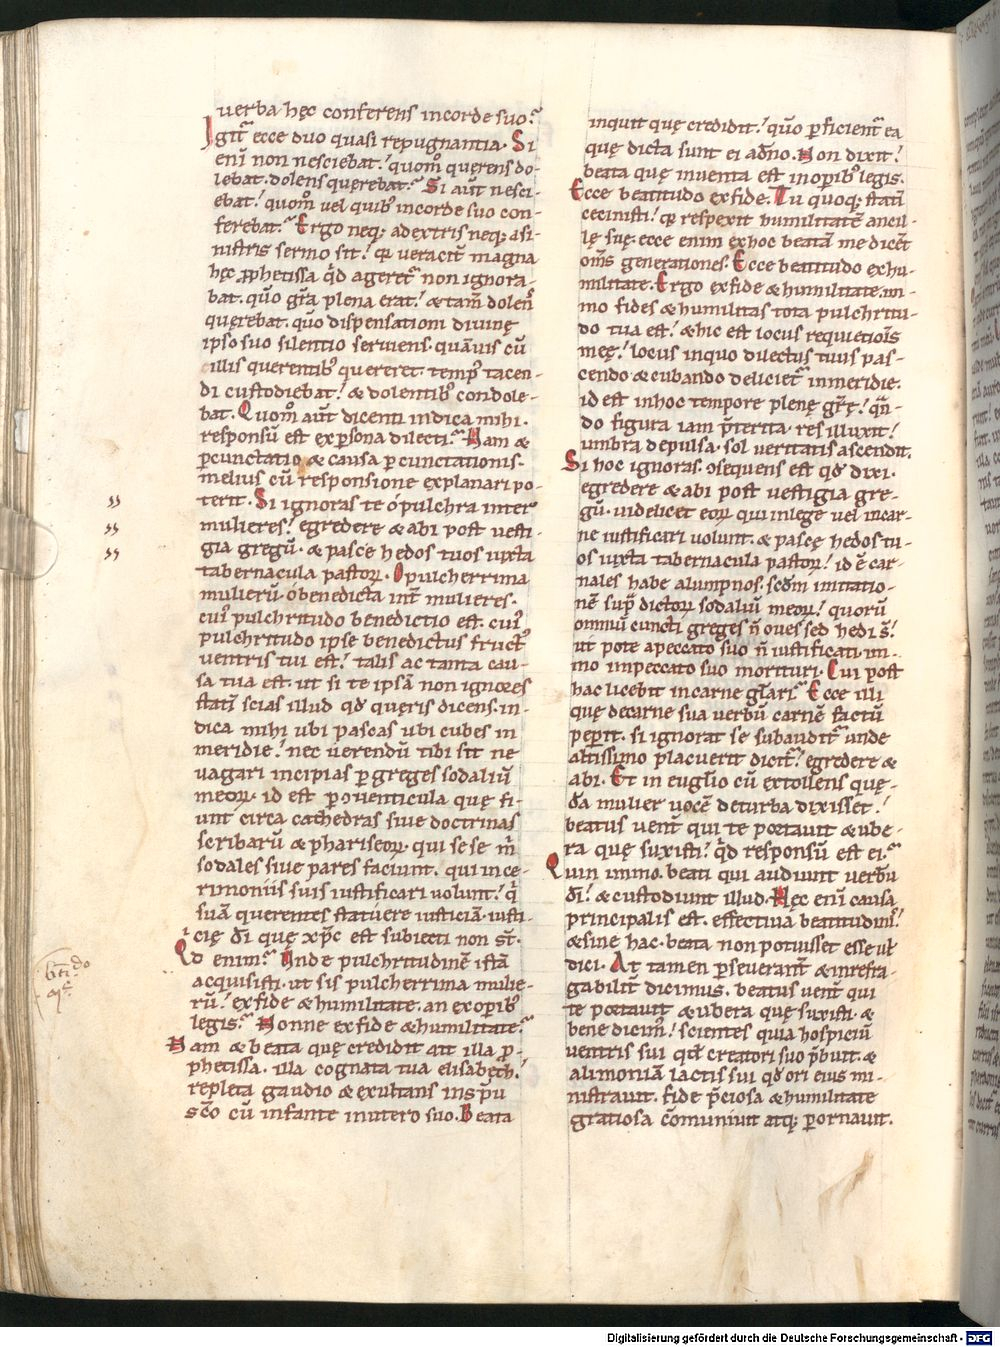 uerba hęc conferens in corde suo?
Igit᷑ ecce duo quasi repugnantia. Si
eni̅ non nesciebat! quom̊ querens do-
lebat. dolens querebat? Si aut̅ nesci-
ebat! quom̊ uel quibꝰ in corde suo con-
ferebat? Ergo neqꝫ ad extris neqꝫ a si-
nistris sermo sit! qꝛ ueracit᷑ magna
hęc ꝓphetissa qd̛ ageret᷑ non ignora
bat. quo̅ gr̅a plena erat! & tam̅ dolens
querebat. quo̅ dispensationi diuinę
ipso suo silentio seruiens. quāuis cū
illis querentibꝰ quereret. tempꝰ tacen-
di custodiebat! & dolentibꝰ condole-
bat. Quom̊ aut̅ dicenti indica mihi.
responsū est ex ꝑsona dilecti? Nam &
ꝑcunctatio & causa ꝑcunctationis.
melius cū responsione explanari po-
terit. Si ignoras te o pulchra inter
mulieres! egredere & abi post uesti-
gia gregū. & pasce hedos tuos iuxta
tabernacula pastoꝝ. O pulcherrima
mulierū o benedicta int̅ mulieres.
cuiꝰ pulchritudo benedictio est. cuiꝰ
pulchritudo ipse benedictus fructꝰ
uentris tui est! talis ac tanta cau-
sa tua est. ut si te ipsā non ignores
stati̅ scias illud qd̛ queris dicens. in-
dica mihi ubi pascas ubi cubes in
meridie! nec uerendū tibi sit ne
uagari incipias ꝑ greges sodaliū
meoꝝ. id est ꝑ ꝯuenticula quę fi-
unt circa cathedras siue doctrinas
scribarū & phariseoꝝ. qui se se m̅
sodales siue pares faciunt. qui in ce-
rimoniis suis iustificari uolunt! q̅
suā querentes statuere iusticiā. iusti-
cię di̅ que xp̅c est subiecti non st̅.
Qd enim? Unde pulchritudinē istā
acquisisti. ut sis pulcherrima mulie-
rū! ex fide & humilitate. an ex operibꝰ
legis? Nonne ex fide & humilitate?
Nam & beata quę credidit ait illa ꝓ-
phetissa. illa cognata tua elisabeth!
repleta gaudio & exultans in sp̅u
sc̅o cū infante in utero suo. Beata
inquit quę credidit! quo̅ ꝑficient᷑ ea
quę dicta sunt ei a dn̅o. Non dixit!
beata que inuenta est in operibꝰ legis.
Ecce beatitudo ex fide. Tu quoqꝫ stati̅
cecinisti! qꝛ respexit humilitatē ancil-
lę suę. ecce enim ex hoc beatā me dicēt
om̅s generationes. Ecce beatitudo ex hu-
militate. Ergo ex fide & humilitate. im-
mo fides & humilitas tota pulchritu-
do tua est! & hic est locus requietio̅is
meę! locus in quo dilectus tuus pas-
cendo & cubando deliciet᷑ in meridie.
id est in hoc tempore plenę gr̅ę! qn̅-
do figura iam p̅terita. res illuxit!
umbra depulsa. sol ueritatis ascendit.
Si hoc ignoras. ꝯsequens est qd̛ dixi.
egredere & abi post uestigia gre-
gū. uidelicet eoꝝ qui in lege uel in car-
ne iustificari uolunt. & pasce hedos tu-
os iuxta tabernacula pastoꝝ! id ē car-
nales habe alumpnos. scd̅m imitatio-
nē sup̅ dictoꝝ sodaliū meoꝝ! quorū
omniū cuncti greges n̅ oues sed hedi s̅!
ut pote a peccato suo n̅ iustificati. im-
mo in peccato suo morituri. Cui post
hac licebit in carne glo̅ari? Ecce illi
quę de carne sua uerbū carnē factū
peperit. si ignorat se subaudit᷑ unde
altissimo placuerit dicit᷑! egredere &
abi. Et in euglio̅ cū extollens quę-
da̅ mulier uocē de turba dixisset!
beatus uent̅ qui te portauit & ube-
ra quę suxisti! qd̛ responsū est ei?
Quin immo. beati qui audiunt uerbū
di̅! & custodiunt illud. Hęc eni̅ causa
principalis est. effectiua beatitudinis!
& sine hac. beata non potuisset esse ul̅
dici. At tamen ꝑseuerant̅ & inrefra-
gabilit̅ dicimus. beatus uent̅ qui
te portauit & ubera quę suxisti. &
bene dicimꝰ! scientes quia hospiciū
uentris sui qd̛ creatori suo p̅buit. &
alimoniā lactis sui qd̛ ori eius mi-
nistrauit. fide p̅ciosa & humilitate
gratiosa co̅muniuit atqꝫ ꝑornauit.
Digitalisierung gefördert durch die Deutsche Forschungsgemeinschaft - DFG